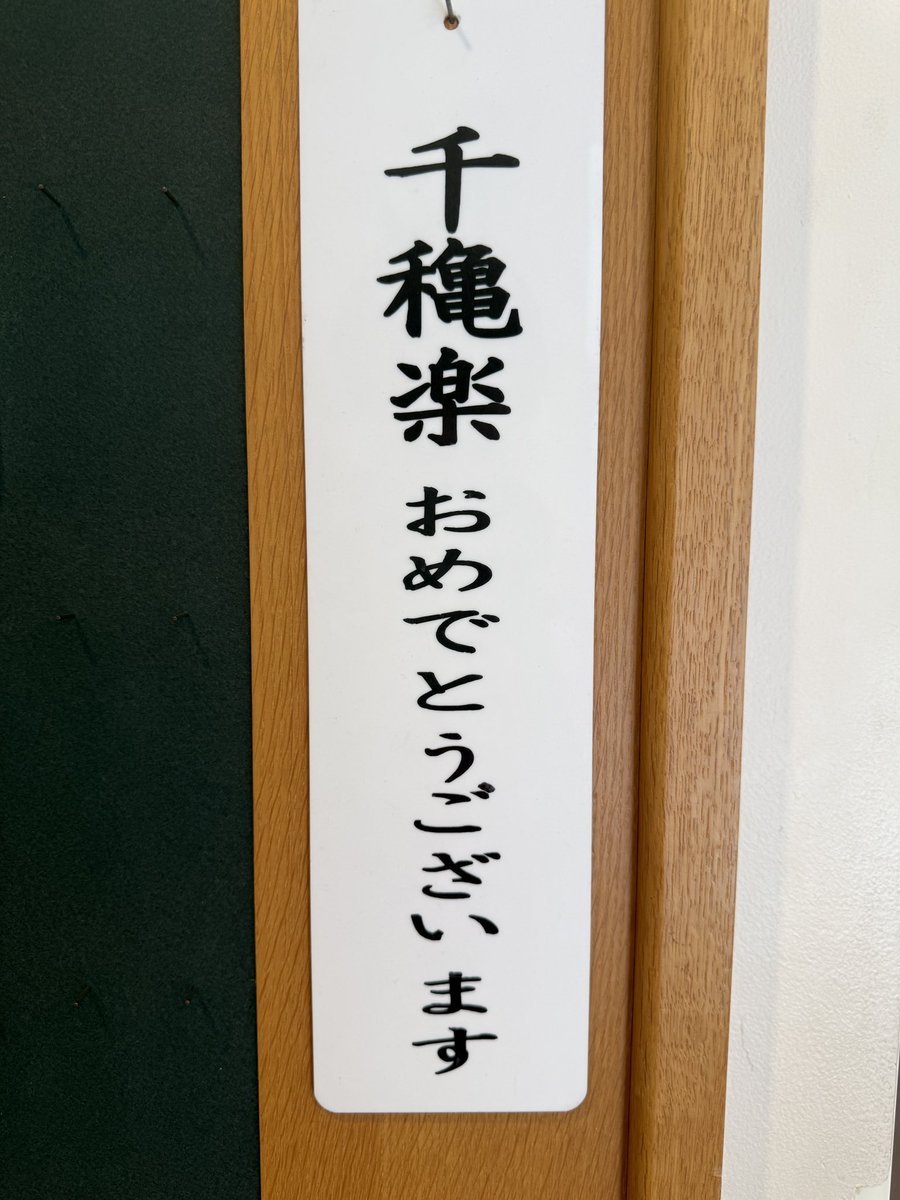 千穐楽 おめでとうございます